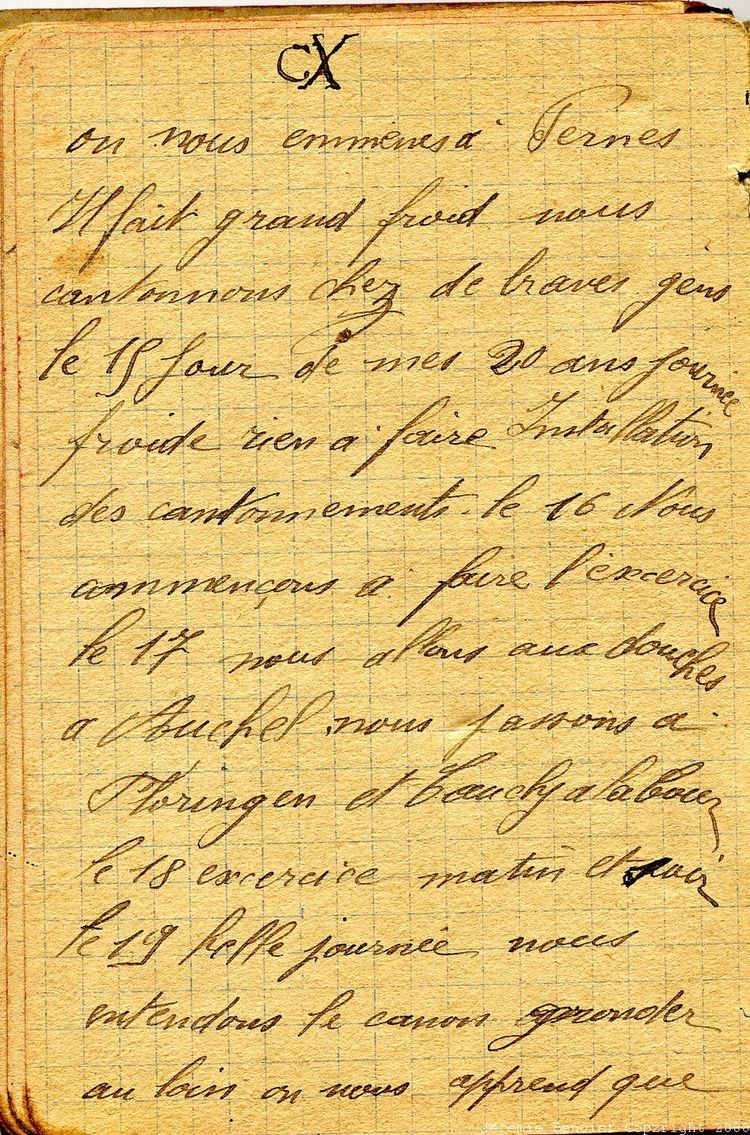 CX
on nous emmènes à Pernes
Il fait grand froid nous
cantonnons chez de braves gens
le 15 Jour de mes 20 ans journée
froide rien à faire Installation
des cantonnements. le 16 Nous
commençons à faire l'excercice
le 17 nous allons aux douches
a Auchel nous passons à
Floringen et Cauchyalatour
le 18 excercice matin et soir
le 19 belle journée nous
entendons le canon gronder
au loin on nous apprend que
Jeremie Benoist Copyright 2006